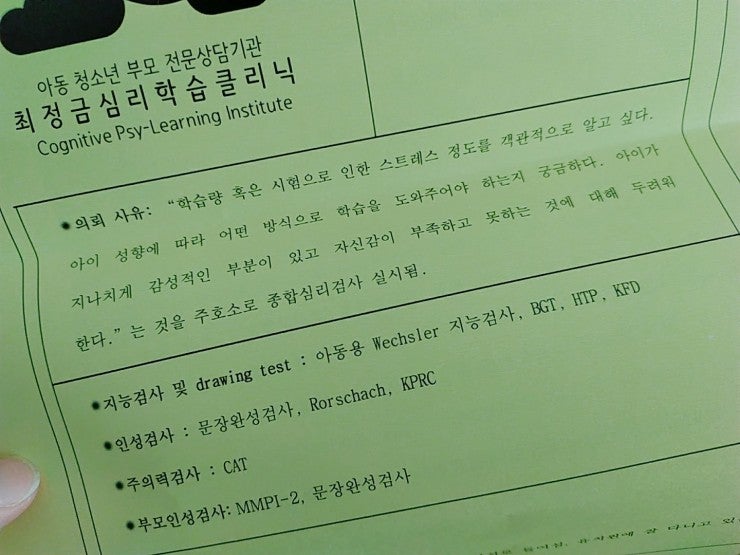 아동 청소년 부모 전문상담기관
최정금심리학습클리닉
Cognitive Psy-Learning Institute
●의뢰 사유: “학습량 혹은 시험으로 인한 스트레스 정도를 객관적으로 알고 싶다.
아이 성향에 따라 어떤 방식으로 학습을 도와주어야 하는지 궁금하다. 아이가
지나치게 감성적인 부분이 있고 자신감이 부족하고 못하는 것에 대해 두려워
한다.” 는 것을 주호소로 종합심리검사 실시됨.
●지능검사 및 drawing test : 아동용 Wechsler 지능검사, BGT, HTP, KFD
●인성검사 : 문장완성검사, Rorschach, KPRC
●주의력검사 : CAT
●부모인성검사: MMPI-2, 문장완성검사
잘 다니고